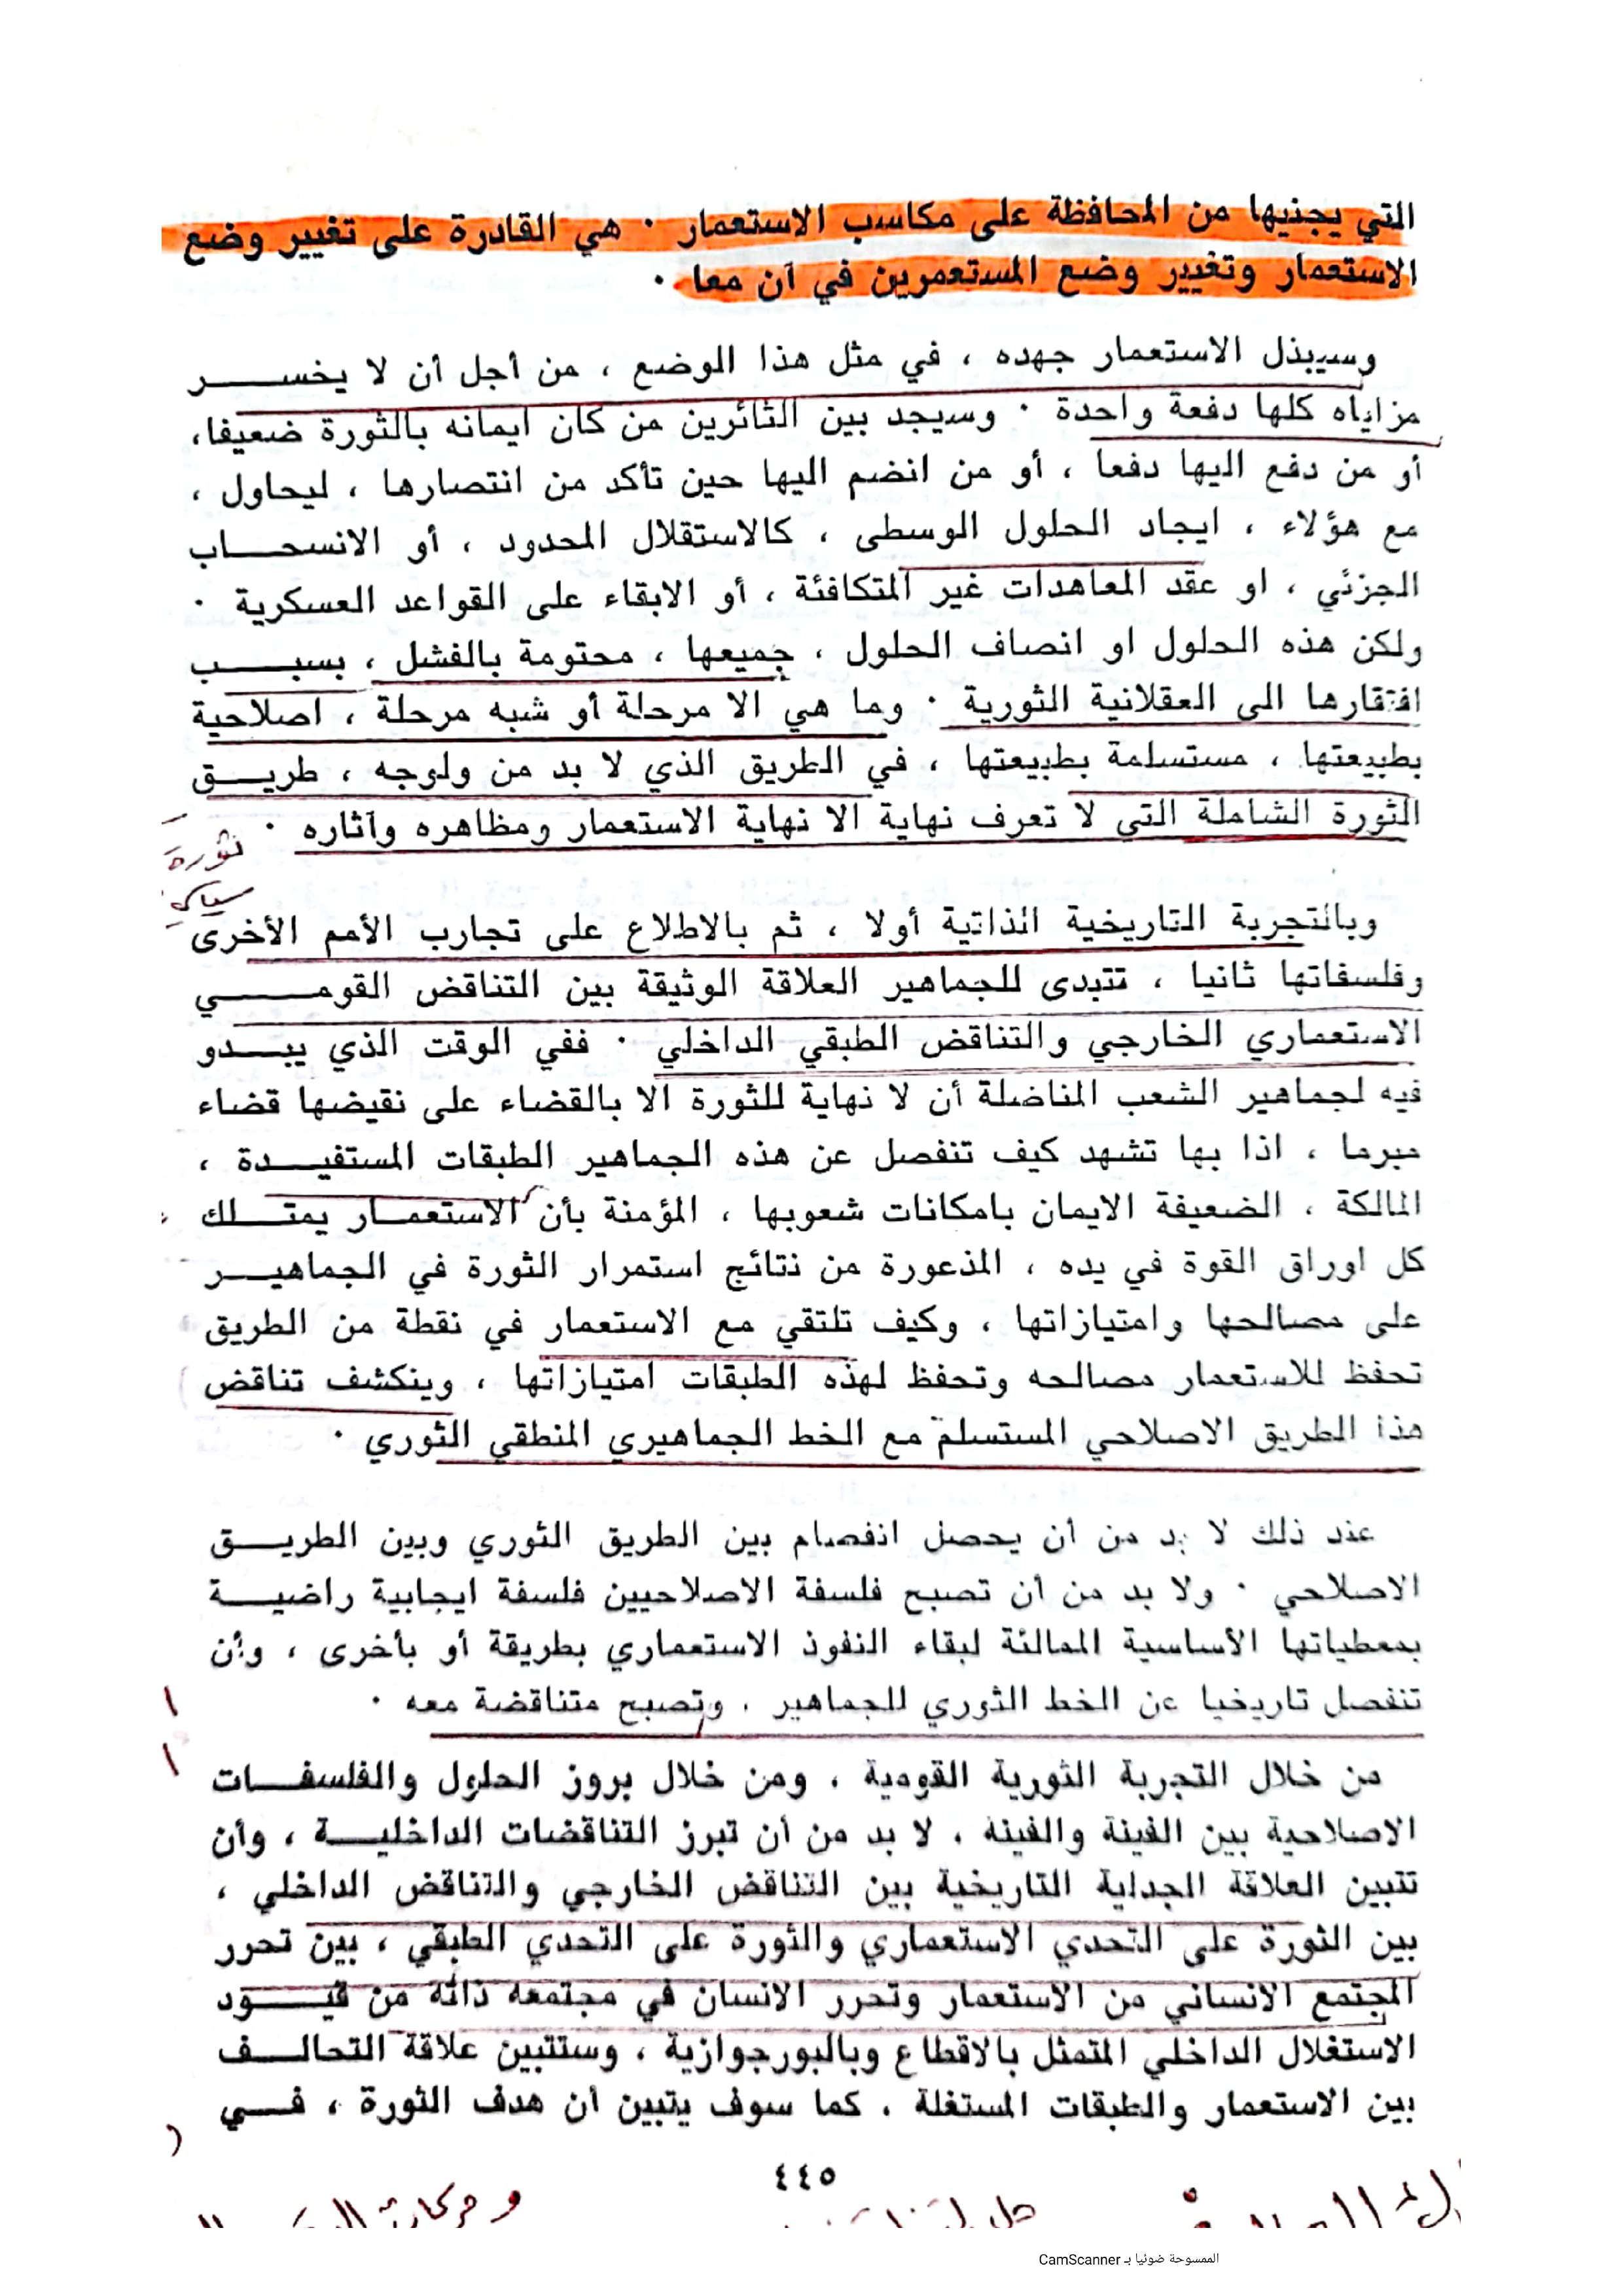 التي يجنيها من المحافظة على مكاسب الاستعمار · هي القادرة على تغيير وضع
الاستعمار وتغيير وضع المستعمرين في آن معا ·
وسيبذل الاستعمار جهده ، في مثل هذا الوضع ، من أجل أن لا يخسر
مزاياه كلها دفعة واحدة · وسيجد بين الثائرين من كان ايمانه بالثورة ضعيفا ،
أو من دفع اليها دفعا ، أو من انضم اليها حين تأكد من انتصارها ، ليحاول ،
مع هؤلاء ، ايجاد الحلول الوسطى ، كالاستقلال المحدود ، أو الانسحاب
الجزئي ، او عقد المعاهدات غير المتكافئة ، أو الابقاء على القواعد العسكرية ·
ولكن هذه الحلول او انصاف الحلول ، جميعها ، محتومة بالفشل ، بسبب
افتقارها الى العقلانية الثورية · وما هي الا مرحلة أو شبه مرحلة ، اصلاحية
بطبيعتها ، مستسلمة بطبيعتها ، في الطريق الذي لا بد من ولوجه ، طريق
الثورة الشاملة التي لا تعرف نهاية الا نهاية الاستعمار ومظاهره وآثاره ·
ثورة
وبالتجربة التاريخية الذاتية أولا ، ثم بالاطلاع على تجارب الأمم الأخرى
وفلسفاتها ثانيا ، تتبدى للجماهير العلاقة الوثيقة بين التناقض القومي
الاستعماري الخارجي والتناقض الطبقي الداخلي · ففي الوقت الذي يبدو
فيه لجماهير الشعب المناضلة أن لا نهاية للثورة الا بالقضاء على نقيضها قضاء
مبرما ، اذا بها تشهد كيف تنفصل عن هذه الجماهير الطبقات المستفيدة ،
المالكة ، الضعيفة الايمان بامكانات شعوبها ، المؤمنة بأن الاستعمار يمتلك
كل اوراق القوة في يده ، المذعورة من نتائج استمرار الثورة في الجماهير
على مصالحها وامتيازاتها ، وكيف تلتقي مع الاستعمار في نقطة من الطريق
تحفظ للاستعمار مصالحه وتحفظ لهذه الطبقات امتيازاتها ، وينكشف تناقض
هذا الطريق الاصلاحي المستسلم مع الخط الجماهيري المنطقي الثوري ·
عند ذلك لا بد من أن يحصل انفصام بين الطريق الثوري وبين الطريق
الاصلاحي · ولا بد من أن تصبح فلسفة الاصلاحيين فلسفة ايجابية راضية
بمعطياتها الأساسية الممالئة لبقاء النفوذ الاستعماري بطريقة أو بأخرى ، وأن
تنفصل تاريخيا عن الخط الثوري للجماهير ، وتصبح متناقضة معه ·
من خلال التجربة الثورية القومية ، ومن خلال بروز الحلول والفلسفات
الاصلاحية بين الفينة والفينة ، لا بد من أن تبرز التناقضات الداخلية ، وأن
تتبين العلاقة الجدلية التاريخية بين التناقض الخارجي والتناقض الداخلي ،
بين الثورة على التحدي الاستعماري والثورة على التحدي الطبقي ، بين تحرر
المجتمع الانساني من الاستعمار وتحرر الانسان في مجتمعه ذاته من قيود
الاستغلال الداخلي المتمثل بالاقطاع وبالبورجوازية ، وستتبين علاقة التحالف
بين الاستعمار والطبقات المستغلة ، كما سوف يتبين أن هدف الثورة ، في
٤٤٥
الممسوحة ضوئيا بـ CamScanner